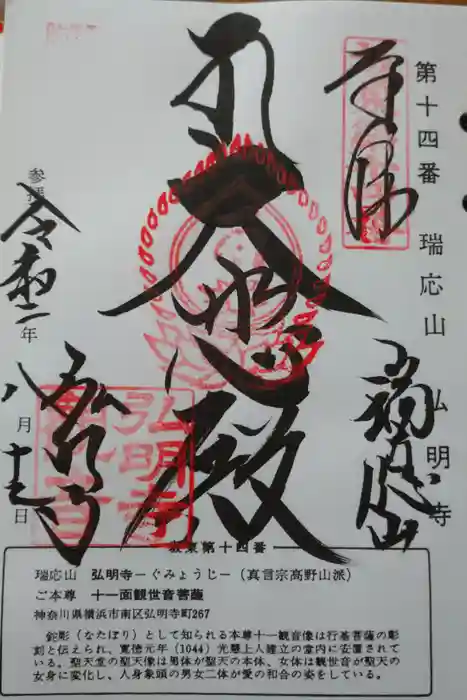 第十四番 瑞応山 弘明寺
奉拝
瑞應山
大悲殿
弘明寺
参拝
令和二年
八月十七日
弘明寺
坂東第十四番
瑞応山 弘明寺－ぐみょうじ－（真言宗高野山派）
ご本尊 十一面観世音菩薩
神奈川県横浜市南区弘明寺町267
鉈彫（なたぼり）として知られる本尊十一観音像は行基菩薩の彫
刻と伝えられ、寛徳元年（1044）光慧上人建立の堂内に安置されて
いる。聖天堂の聖天像は男体が聖天の本体、女体は観世音が聖天の
女身に変化し、人身象頭の男女二体が愛の和合の姿をしている。